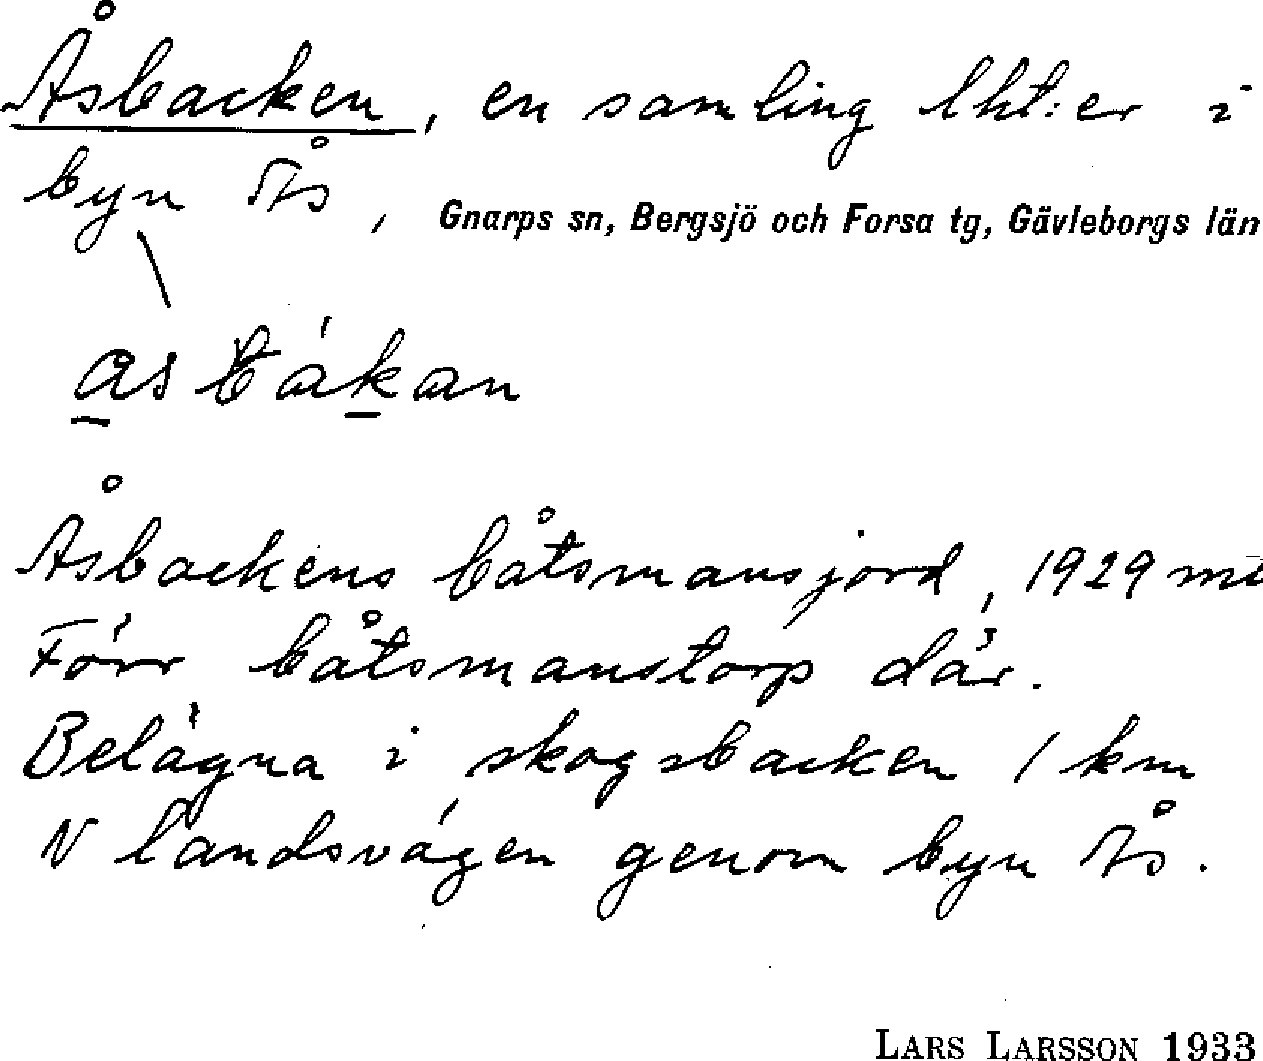 Åsbacken, en samling lht:er i
byn Ås, Gnarps sn, Bergsjö och Forsa tg, Gävleborgs län
Åsbackens båtsmansjord, 1929 mt
Förr båtsmanstorp där.
Belägna i skogsbacken 1 km
N landsvägen genom byn Ås.
LARS LARSSON 1933